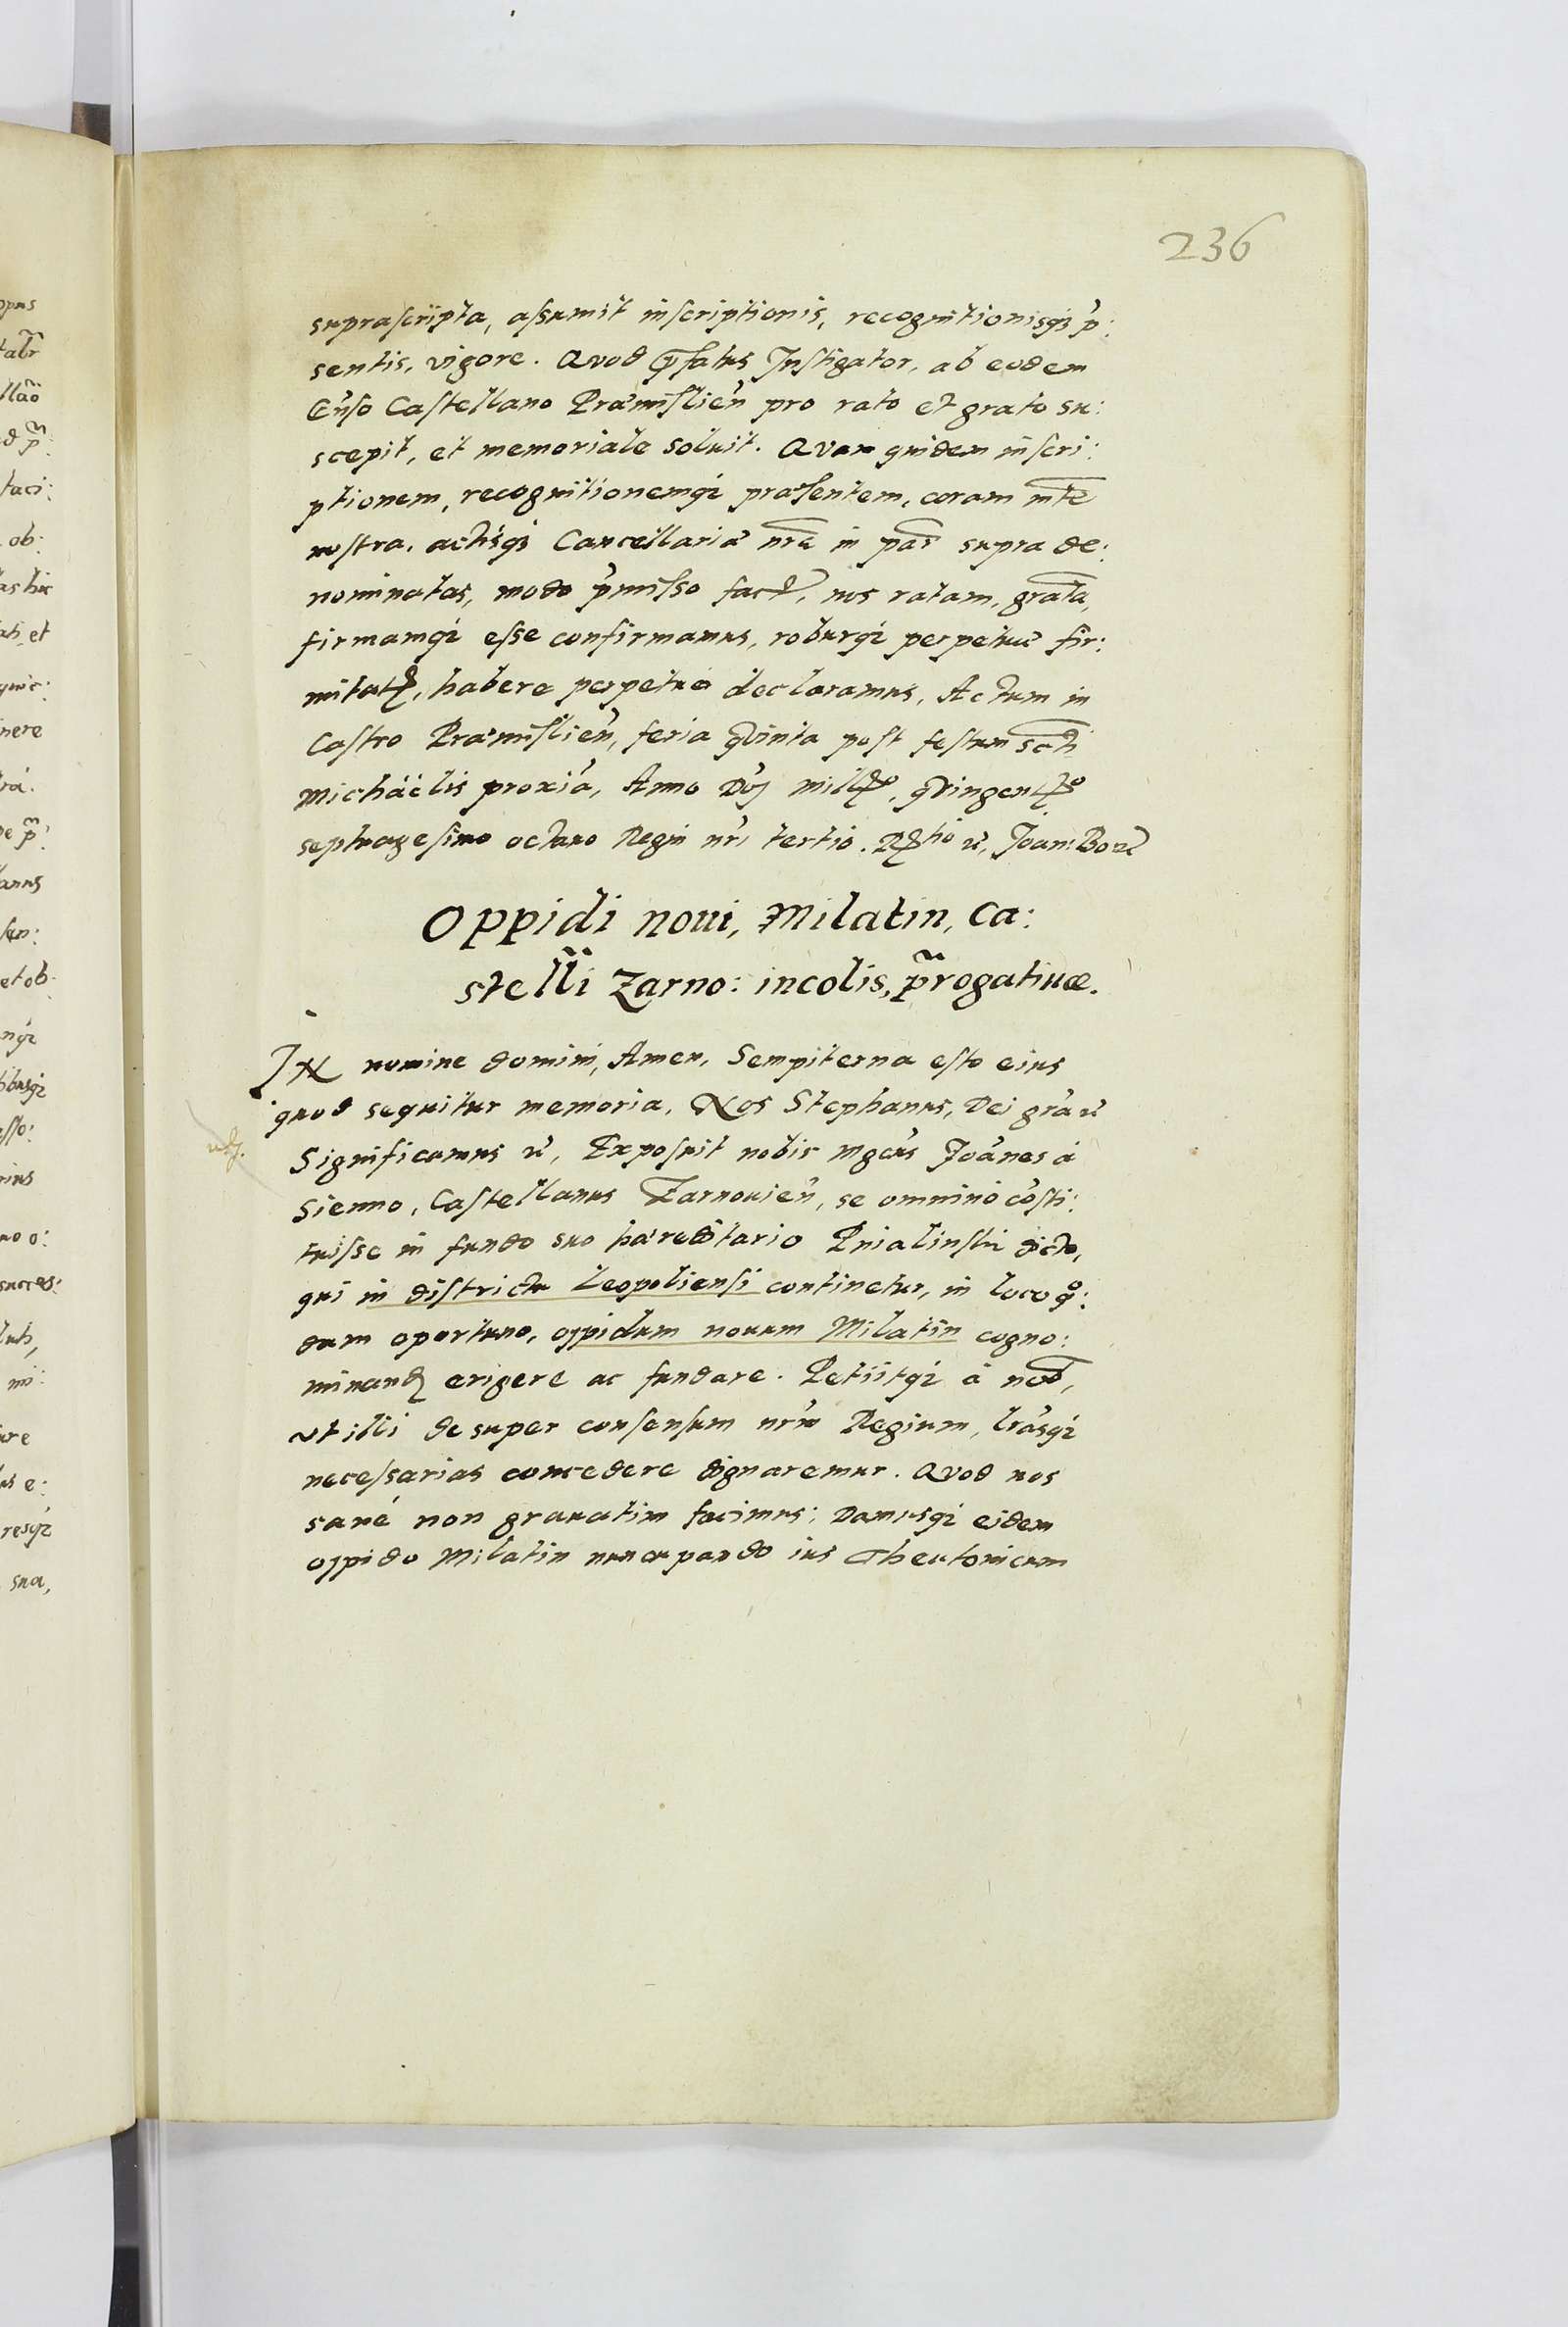 236
suprascripta, assumit inscriptionis, recognitionisq₃ p̄:
sentis, vigore. Quod p̄fatus Instigator, ab eodem
Gn̄so Castellano Præmislien̄ pro rato et grato su:
scepit, et memoriale soluit. Quam quidem inscri:
ptionem, recognitionemq₃ præsentem, coram mt̄e
nostra, actisq₃ Cancellariæ nr̄æ in pās supra de:
nominatas, modo p̄misso fact, nos ratam, grat̄a,
firmamq₃ esse confirmamus, roburq₃ perpetuæ fir:
mitat, habere perpetuò declaramus, Actum in
Castro Præmislien̄, feria quinta post festum sct̄i
Michäelis proxiā, Anno Dn̄j mill͞o, quingent͞o
septuagesimo octauo Regni nr̄i tertio. tio Joan: Bor
Oppidi noui, Milatin, Ca:
stell̃i Zarno: incolis, p̃rogatiuæ.
IN nomine domini, Amen, Sempiterna esto eius
quod sequitur memoria, Nos Stephanus, Dei grā &
Significamus &, Exposuit nobis Mgcūs Joānes à
Sienno, Castellanus Zarnouien̄, se omninò cōsti:
tuisse in fundo suo hæreditario Pnialinski dicto,
qui in districtu Leopoliensi continetur, in loco q°:
dam oportuno, oppidum nouum Milatin cogno:
minand erigere ac fundare. Petiitq₃ à nob̄,
vt illi desuper consensum nr̄m Regium, lrāsq₃
necessarias concedere dignaremur. Quod nos
sanè non grauatim facimus; Damusq₃ eidem
oppido Milatin nuncupando ius Theutonicum